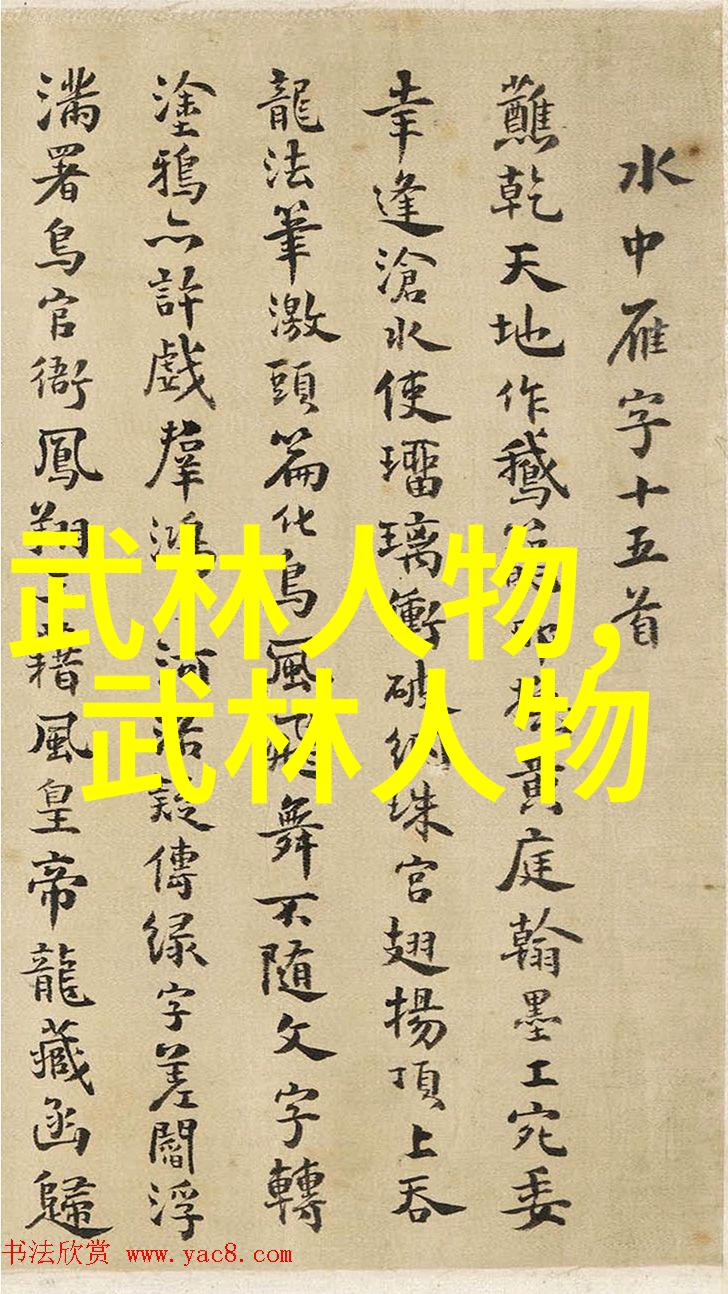 水中雁字十五首
蘸乾天地作鵝黃庭翰墨工宛委
幸逢滄水使璢璃衝破珠宮翅揚頂上吞
龍法筆激頭篇化鳥風飛舞不隨文字轉
塗鴉亦許戲羣鴻河洛疑傳綠字差閻浮
滿署鳥官銜鳳翔藉風皇帝龍藏函歸
武林人物,
武林人物
书法欣赏 www.yac8.com